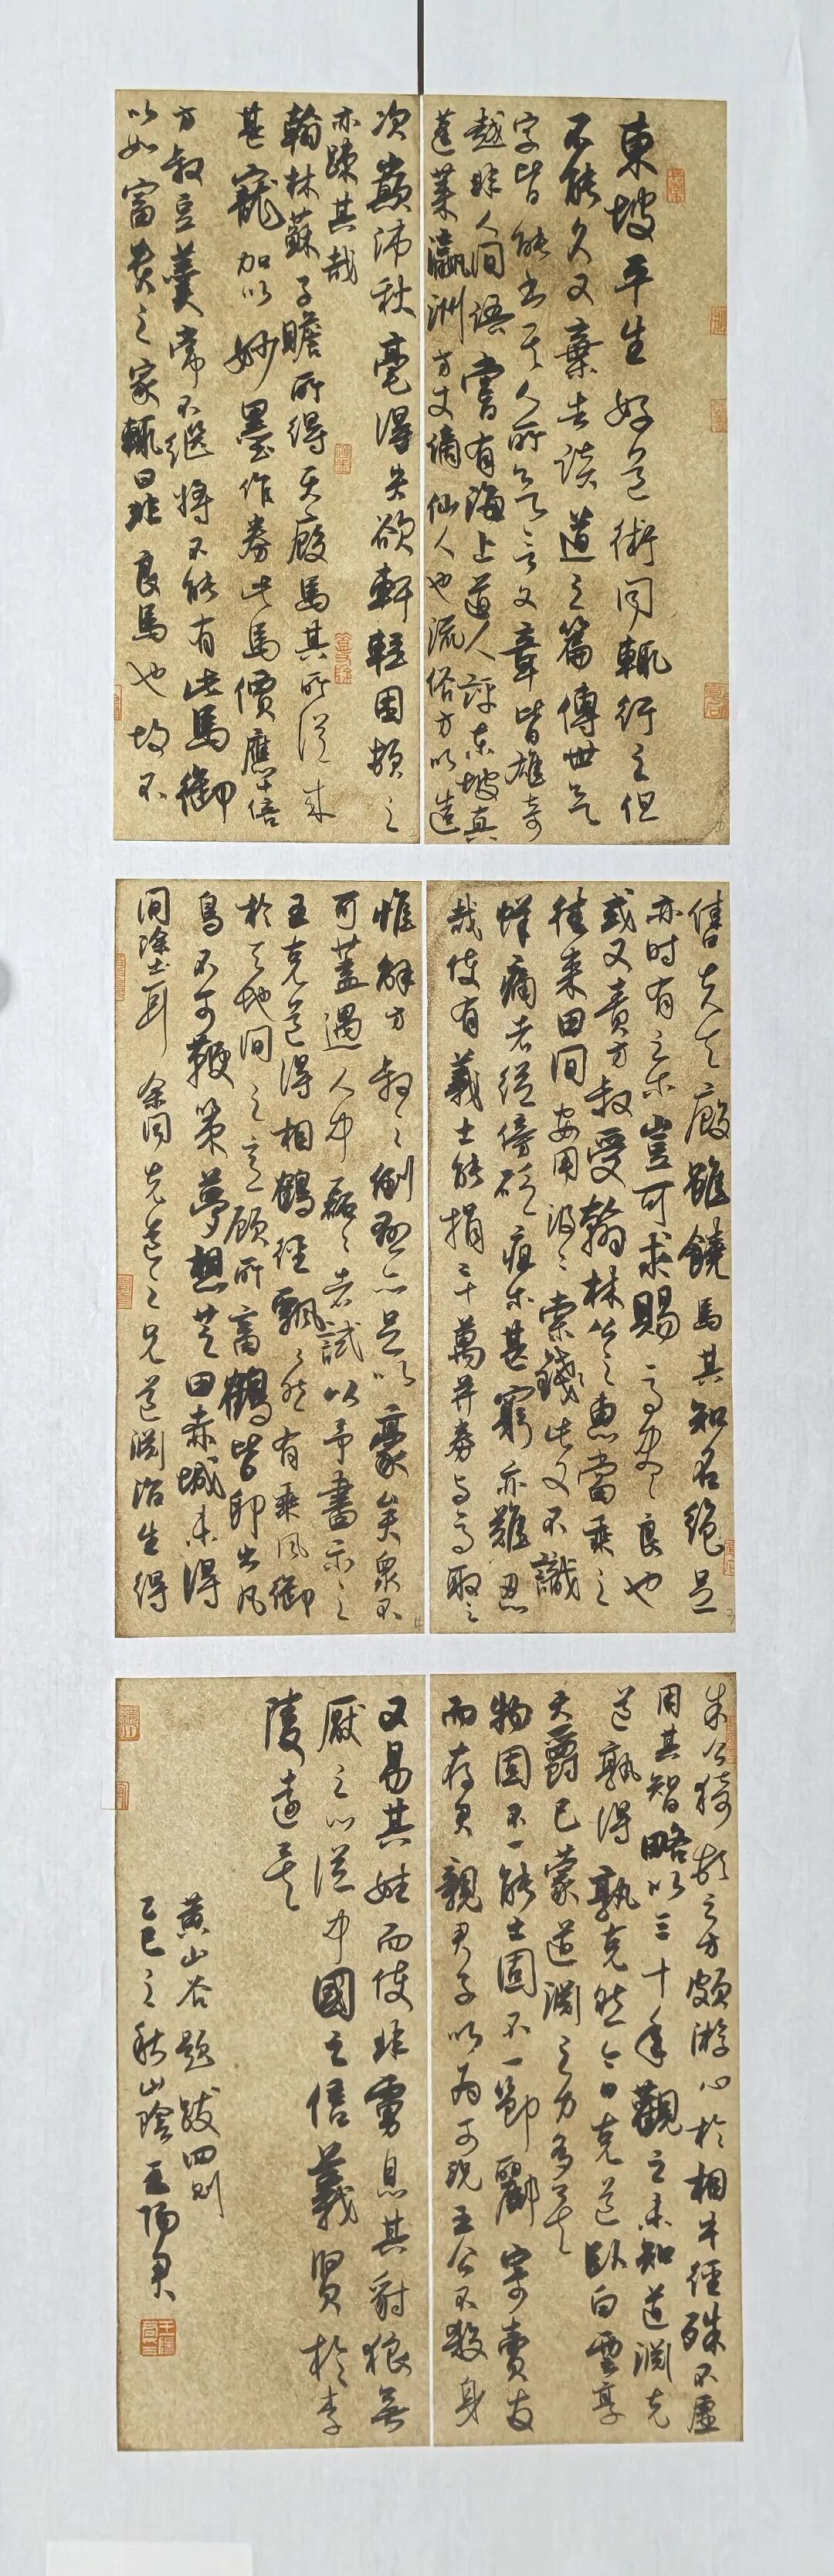 東坡平生好道術聞輒行之但
不能久又棄去談道之篇傳世欠
字皆能書其人所欠言文章皆雄奇
越非人間語嘗有海上道人評東坡真
蓬萊瀛洲方丈謫仙人也流俗方以造
次顛沛秋毫得失欲軒輊困頓之
亦疎其哉
翰林蘇子瞻所得天廄馬其所從來
甚寵加以妙墨作券此馬價應十倍
方叔豆羹常不繼將不能有此馬御
以如富貴之家輒曰非良馬也故不
售夫天廄雖饒馬其知名絕足
亦時有之爾豈可求賜馬盡良也
或又責方叔受翰林公之惠當乘之
往來田間安用汲汲索錢此又不識
蛘痛者從傍砭疽爾甚窮亦難忍
哉使有義士能捐二十萬并券與馬取之
惟解方叔之倒懸亦足以豪矣眾不
可蓋遇人中磊磊者試以予書示之
王克道得相鶴經飄飄然有乘風御
於天地間之意顧所畜鶴皆卵出凡
鳥不可鞭策夢想芝田赤城未得
間除土耳 余聞克道之兄道淵治生得
朱公猗頓之方頗游心於相牛經殊不虛
用其智略以三十年觀之未知道淵克
道孰得孰失然今日克道臥白雲享
天爵已蒙道淵之力多矣
物固不一能士固不一節酈寄賣友
而存君親君子以為可王公不殺身
又易其姓而使非虜息其豺狼無
厭之心從中國之信義賢於李
陵遠矣
黃山谷題跋四則
乙巳之秋山陰王陽君